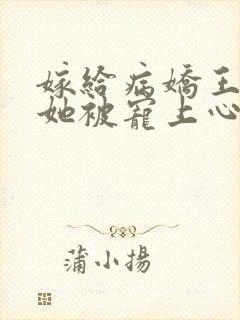 嫁給病嬌王
她被寵上心
蒲小揚